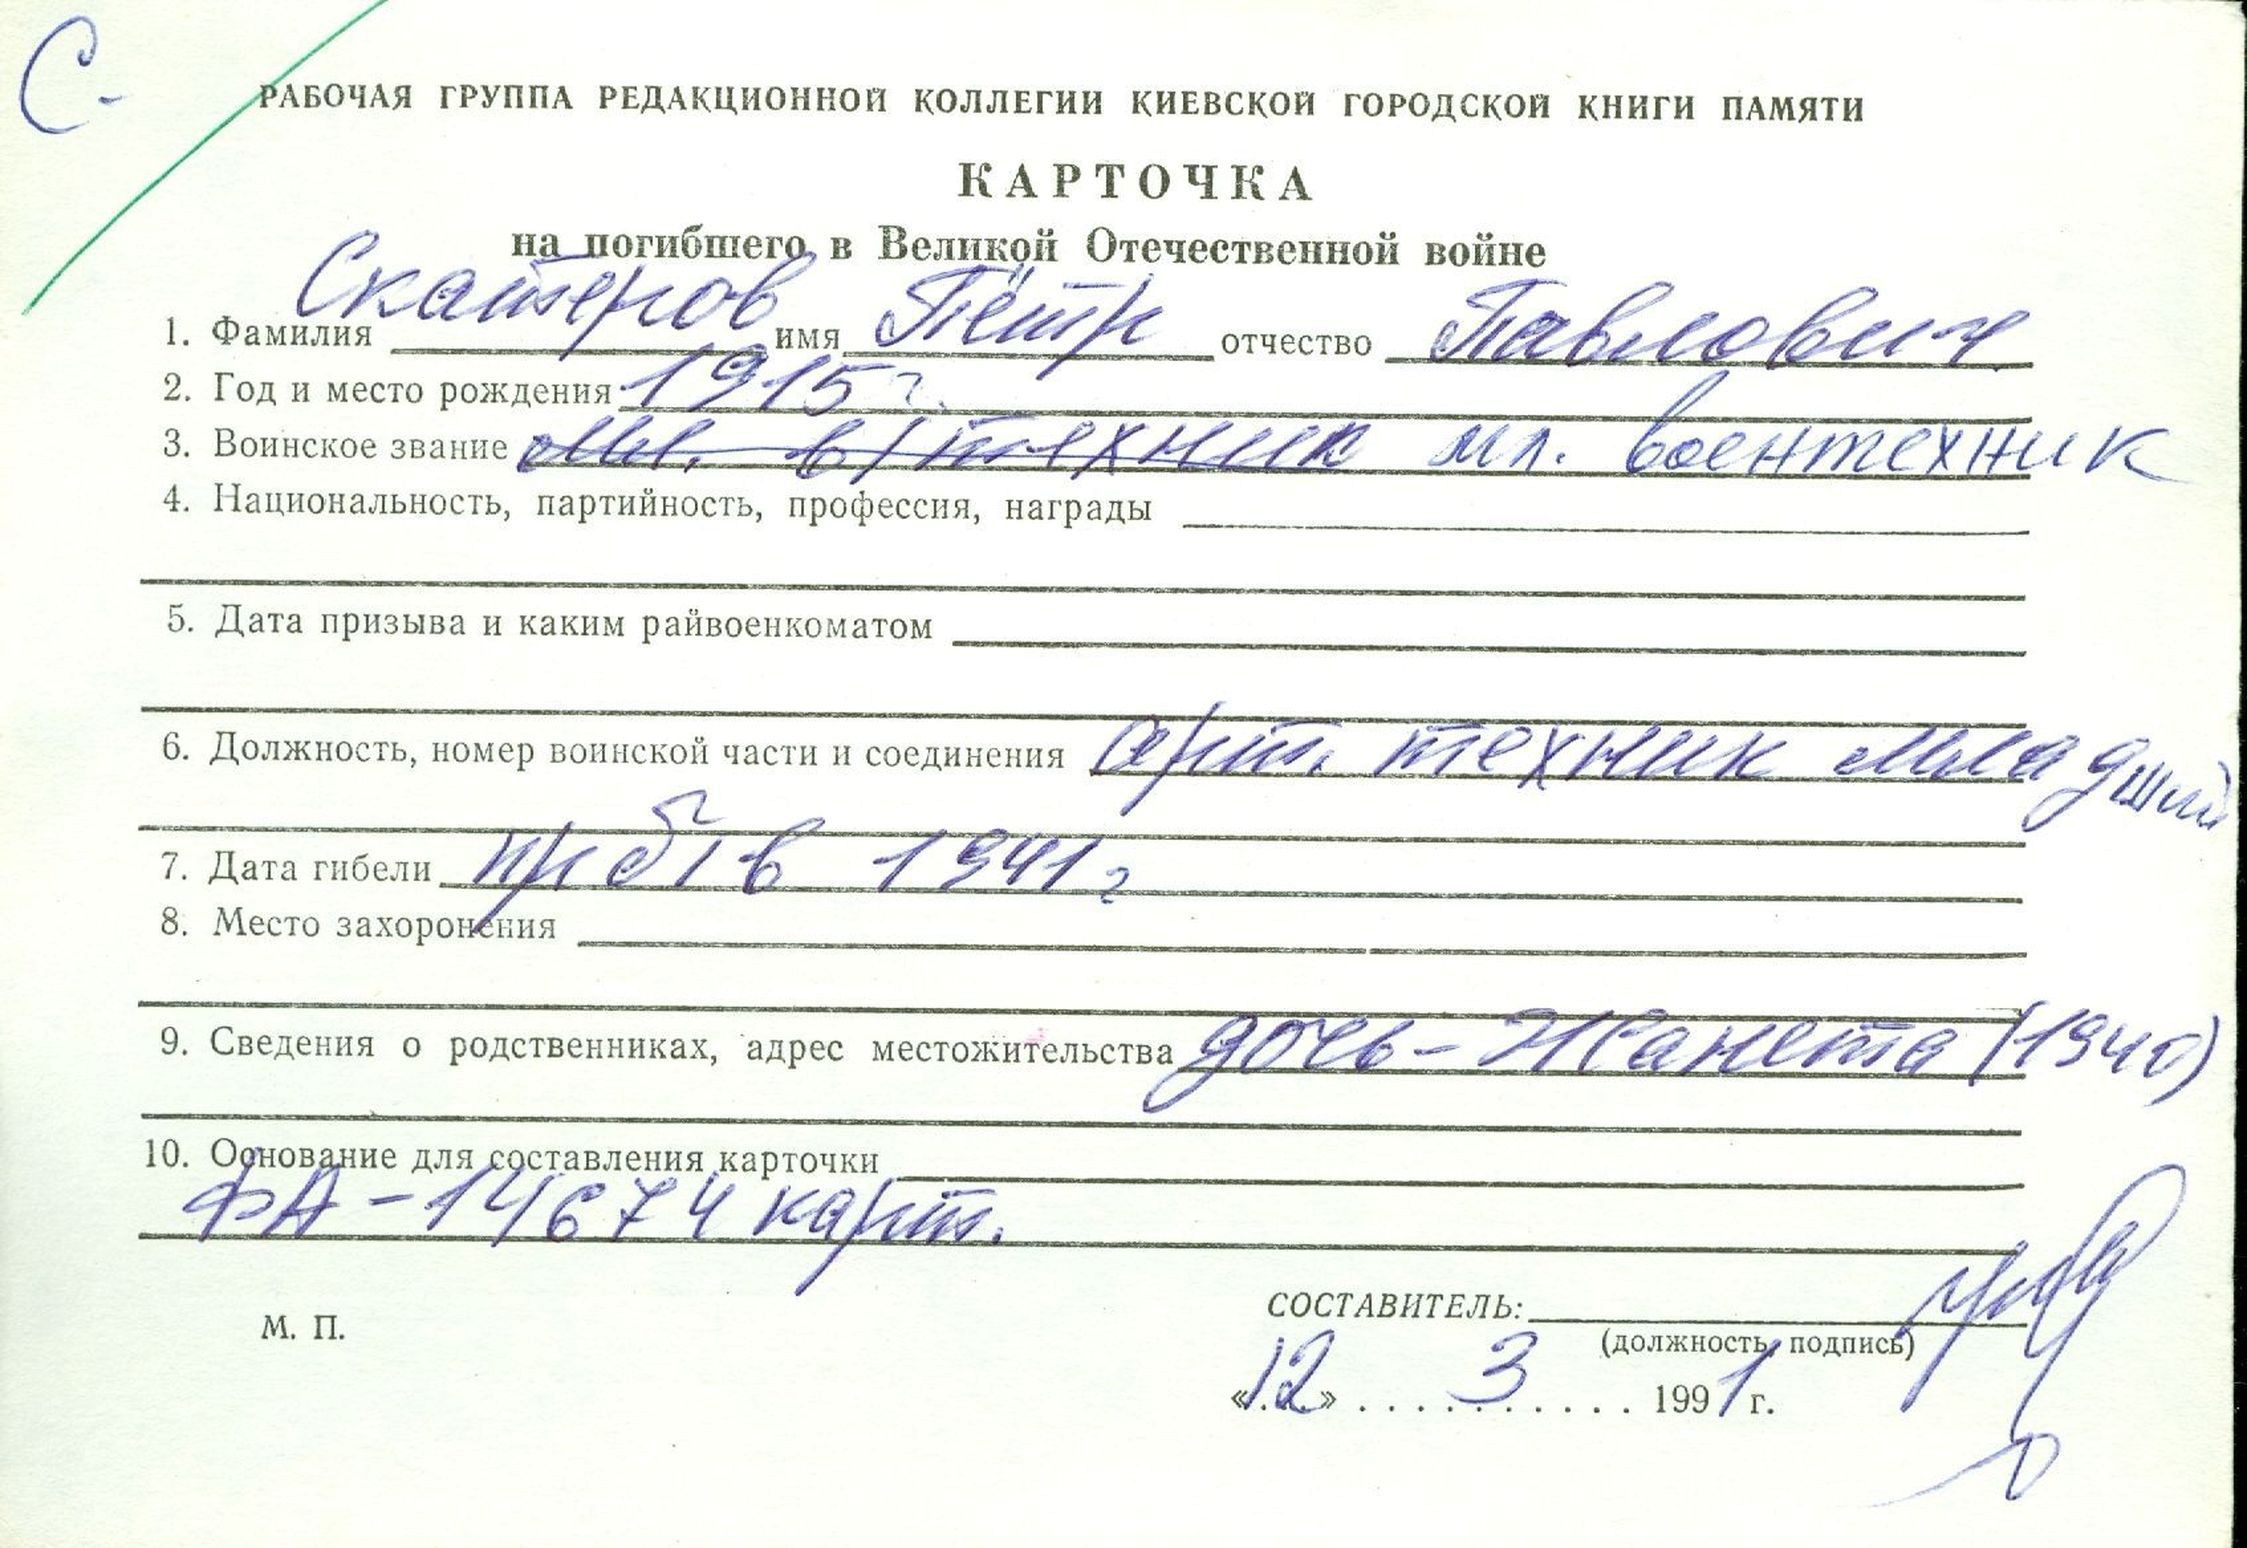 С-
РАБОЧАЯ ГРУППА РЕДАКЦИОННОЙ КОЛЛЕГИИ КИЕВСКОЙ ГОРОДСКОЙ КНИГИ ПАМЯТИ
КАРТОЧКА
на погибшего в Великой Отечественной войне
1. Фамилия Скатеров имя Пётр отчество Павлович
2. Год и место рождения 1915 г.
3. Воинское звание мл. в/техник мл. воентехник
4. Национальность, партийность, профессия, награды
5. Дата призыва и каким райвоенкоматом
6. Должность, номер воинской части и соединения арт. техник младший
7. Дата гибели пр б/в 1941 г
8. Место захоронения
9. Сведения о родственниках, адрес местожительства дочь - Жанета (1940)
10. Основание для составления карточки
ФА - 14674 карт.
СОСТАВИТЕЛЬ:
М. П.
(должность, подпись)
«12» 3 1991 г.